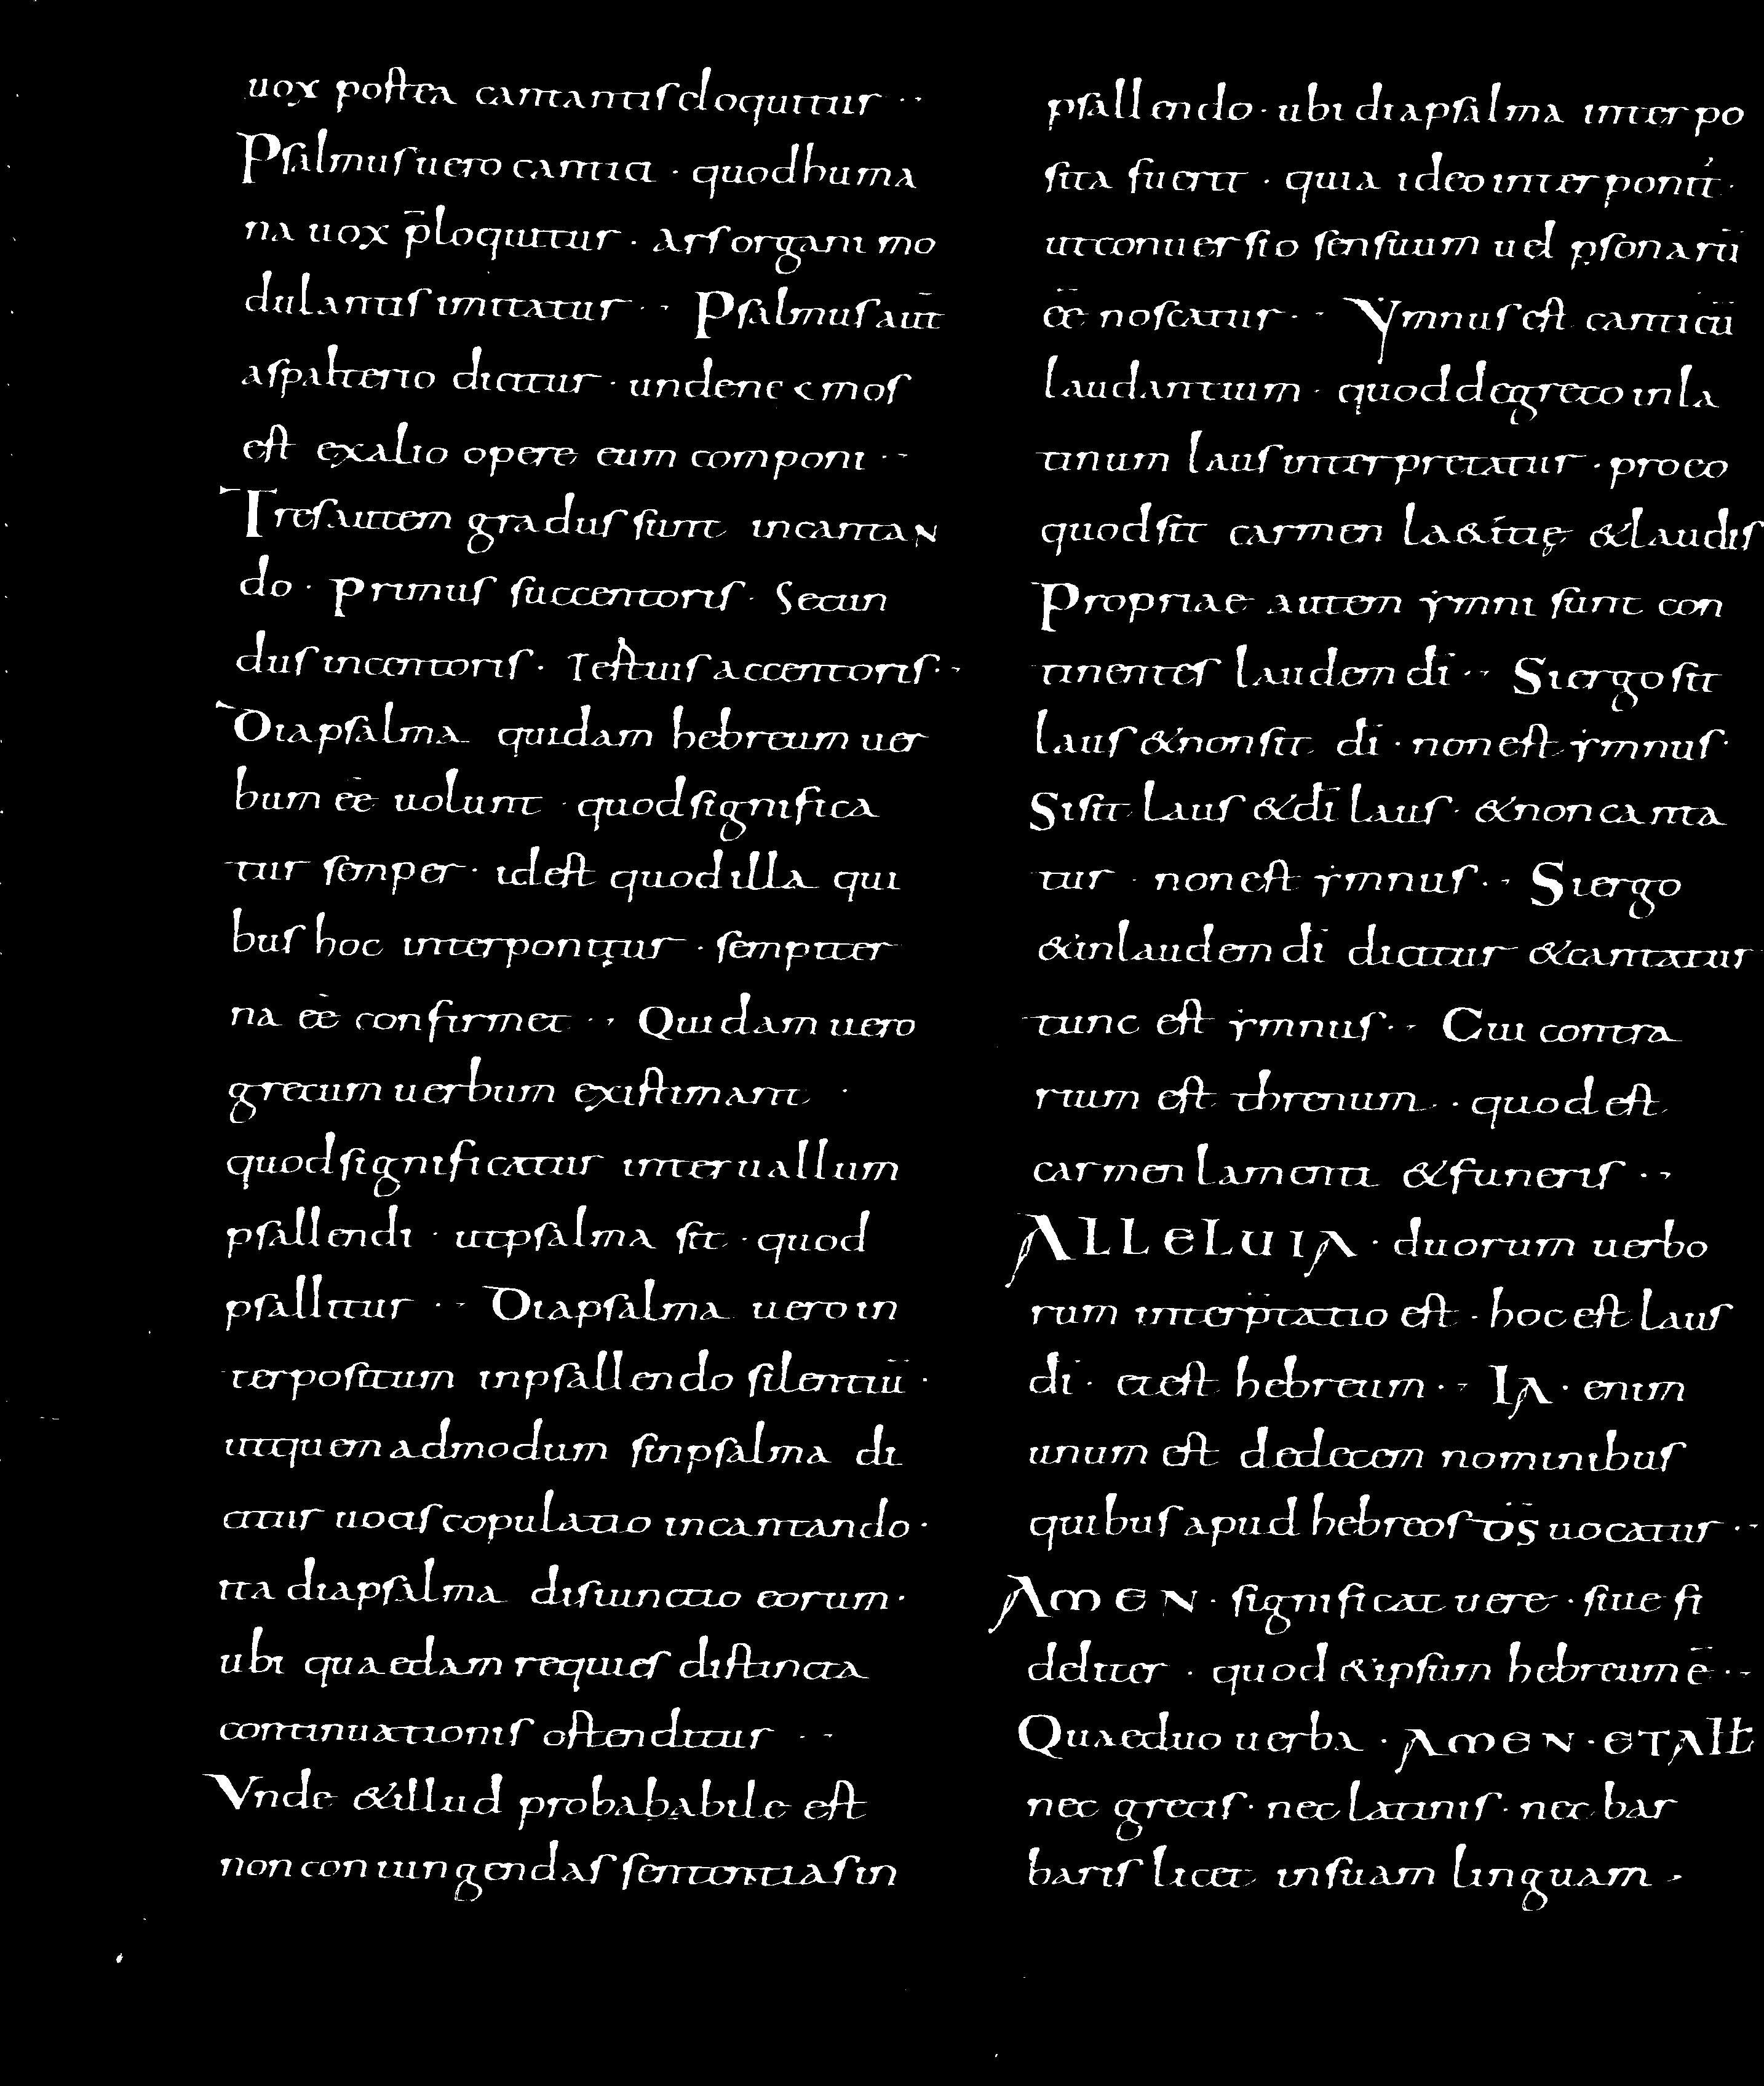 uox postea cantantis eloquitur ··
Psalmus uero cantici · quod huma
na uox p̄loquitur · ars organi mo
dulantis imitatur ·· Psalmus aut̄
a spalterio dicitur · unde nec mos
est ex alio opere eum componi ··
Tres autem gradus sunt in cantaN
do · primus succentoris · Secun
dus incentoris · Tertius accentoris ··
Diapsalma quidam hebreum uer
bum eē uolunt · quod significa
tur semper · id est quod illa qui
bus hoc interponitur · sempiter
na eē confirmet ·· Quidam uero
grecum uerbum existimant ·
quod significatur interuallum
psallendi · ut psalma sit · quod
psallitur ·· Diapsalma uero in
terpositum in psallendo silentiū ·
ut quemadmodum sinpsalma di
citur uocis copulatio in cantando ·
ita diapsalma disiunctio eorum ·
ubi quaedam requies distincta
continuationis ostenditur ··
Vnde & illud probababile est
non coniungendas sententias in
psallendo · ubi diapsalma interpo
sita fuerit · quia ideo interponit᾿ ·
ut conuersio sensuum uel ꝑsonarū
eē noscatur ·· Ymnus est canticū
laudantium · quod de greco in la
tinum laus interpretatur · pro eo
quod sit carmen la&itiae & laudis
Propriae autem ẏmni sunt con
tinentes laudem dī ·· Si ergo sit
laus & non sit dī · non est ẏmnus ·
Si sit laus & dī laus · & non canta
tur · non est ẏmnus ·· Si ergo
& in laudem dī dicitur & cantatur
tunc est ẏmnus ·· Cui contra
rium est threnum · quod est
carmen lamenti & funeris ··
ALLELUIA · duorum uerbo
rum interp̄tatio est · hoc est laus
dī · et est hebreum ·· IA · enim
unum est de decem nominibus
quibus apud hebreos ds̄ uocatur ··
AMEN · significat uere · siue fi
deliter · quod & ipsum hebreum ē ··
Quae duo uerba · AMEN · ET Alł
nec grecis · nec latinis · nec bar
baris licet in suam linguam ·